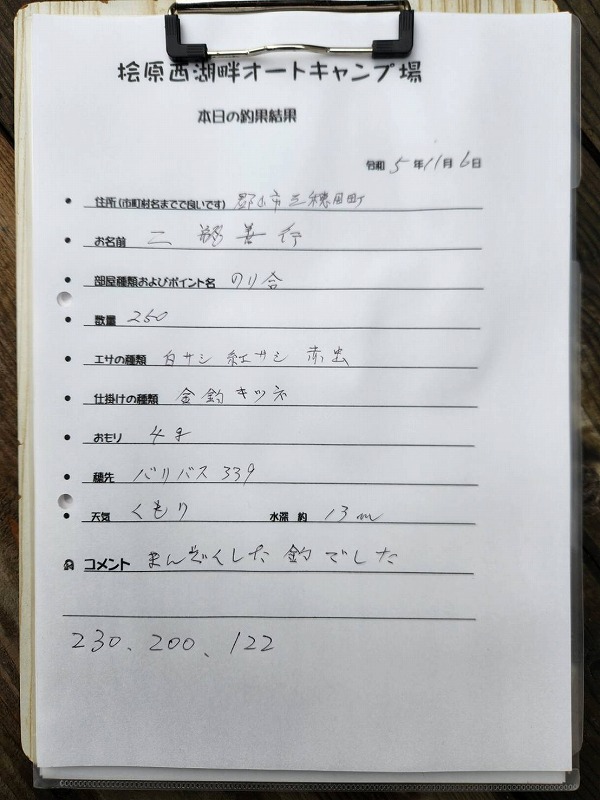 桧原西湖畔オートキャンプ場
本日の釣果結果
令和 5 年 11 月 6 日
住所(市町村名までで良いです) 郡山市三穂田町
お名前 二瓶善行
部屋種類およびポイント名 のり合
数量 250
エサの種類 白サシ 紅サシ 赤虫
仕掛けの種類 金釣キツネ
おもり 4g
穂先 バリバス 339
天気 くもり 水深 約 13m
コメント まんぞくした 釣でした
230、200、122